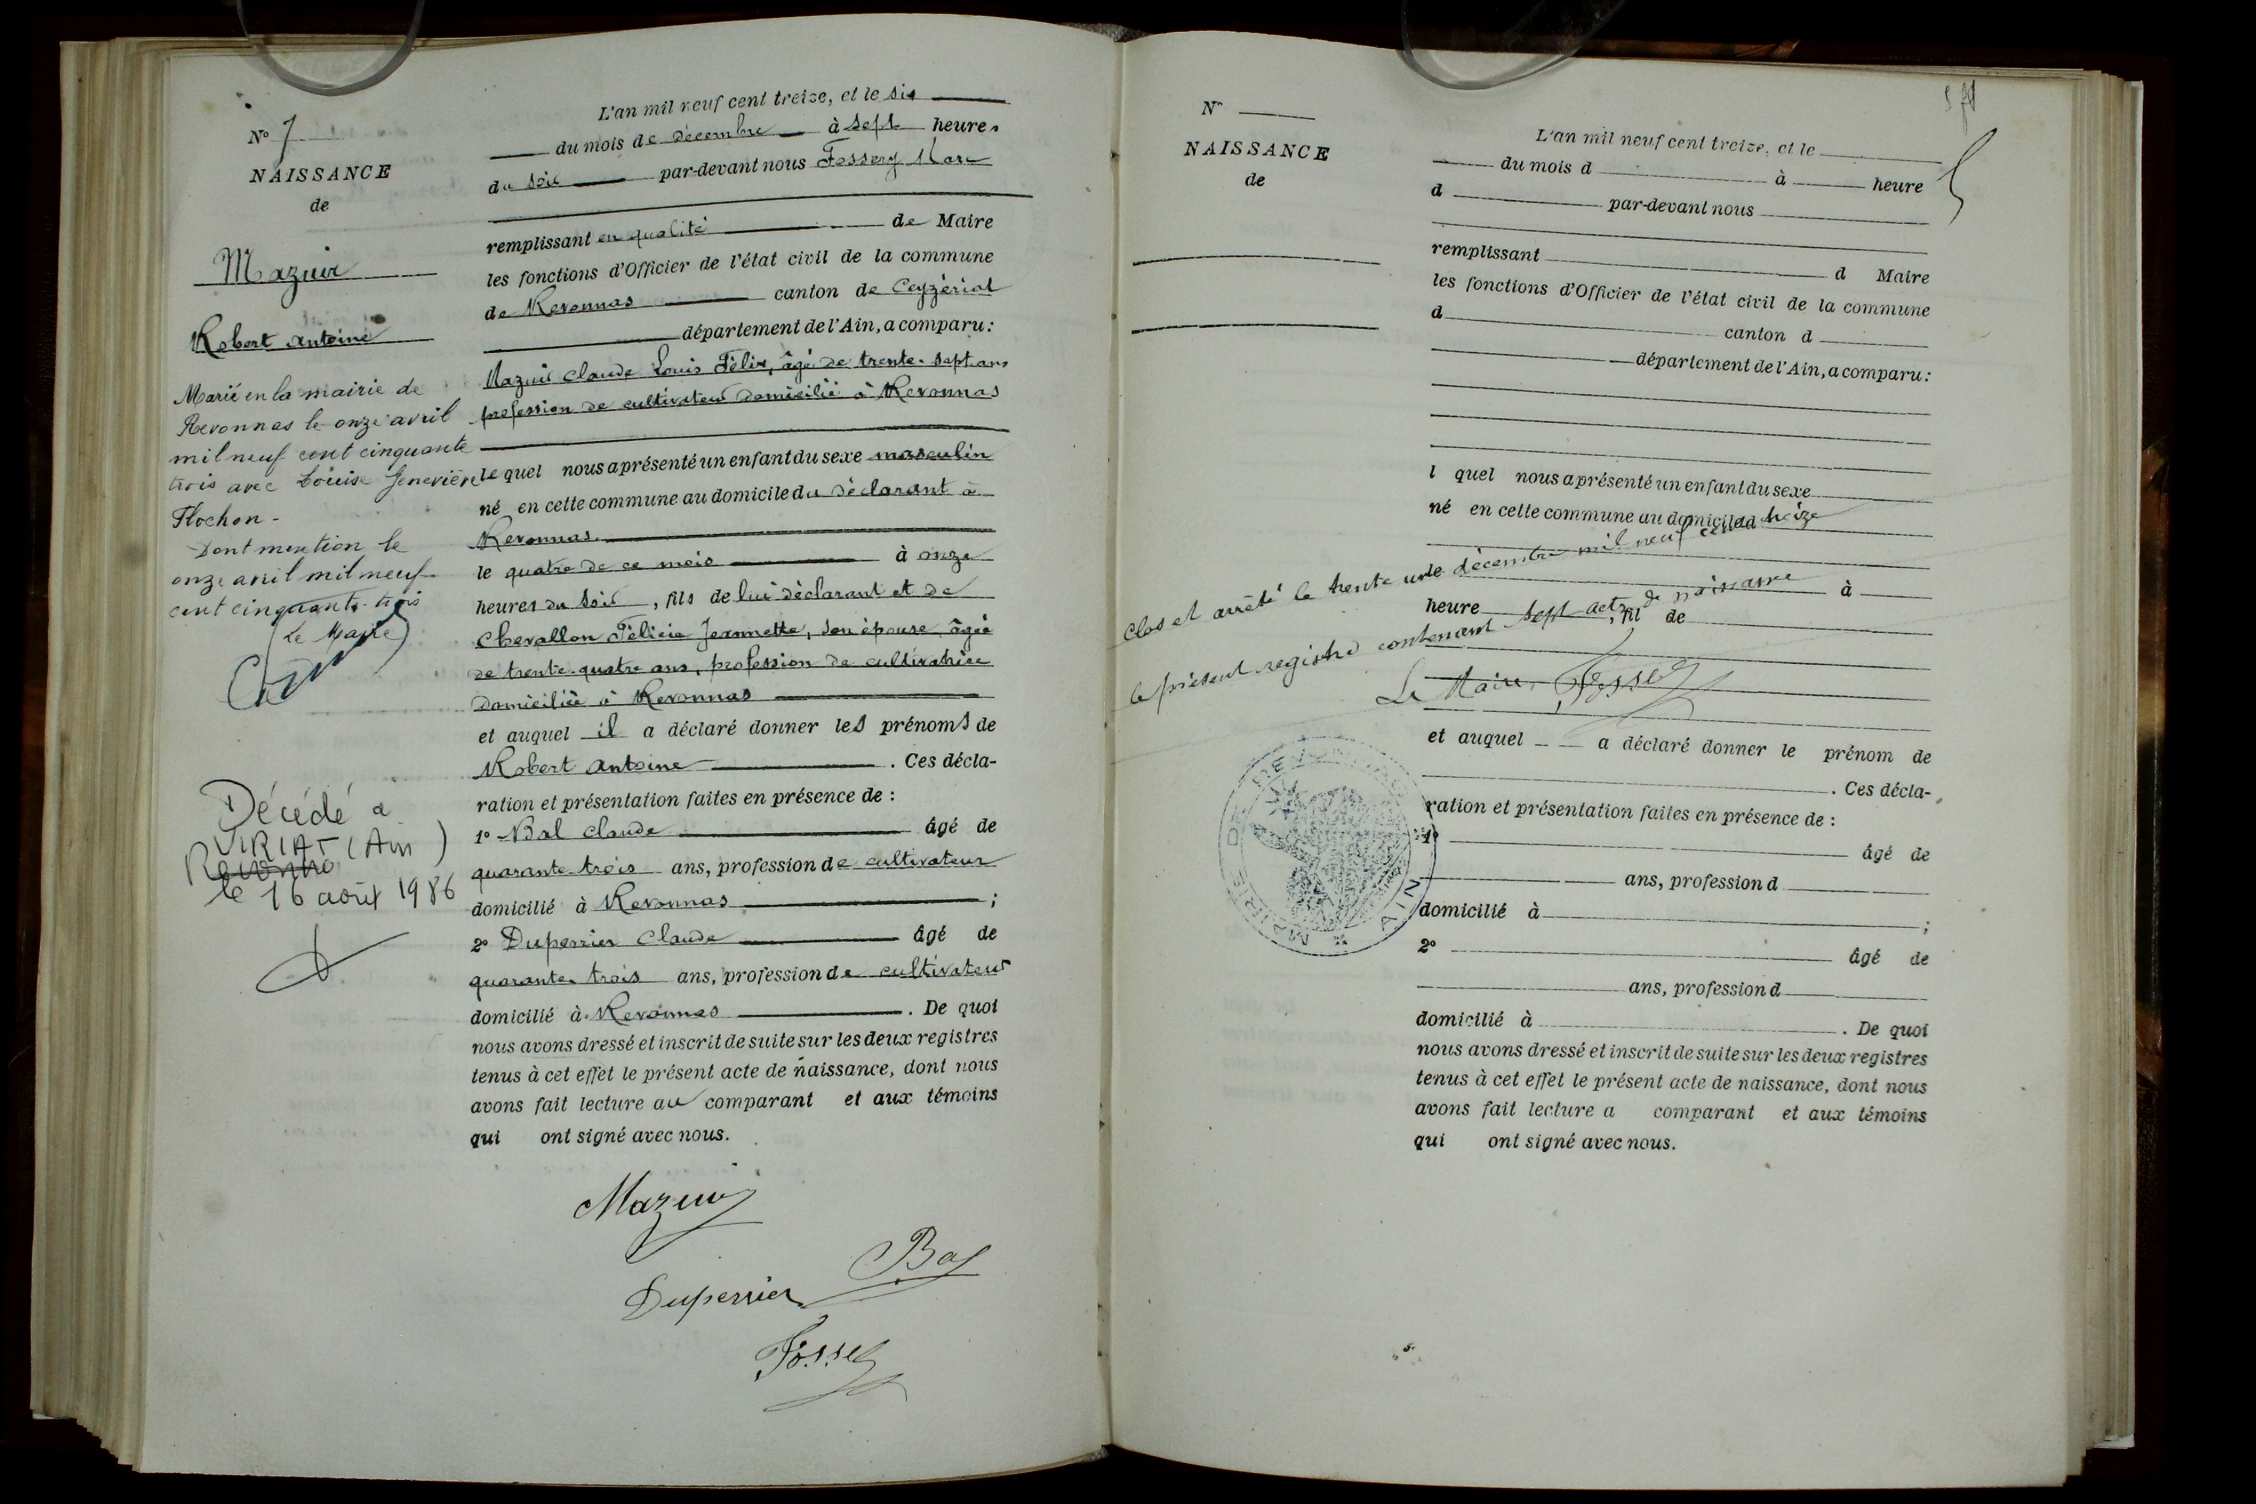 N° 7
NAISSANCE
de
Mazuir
Robert Antoine
Marié en la mairie de
Revonnas le onze avril
mil neuf cent cinquante
trois avec Louise Geneviève
Flochon -
Dont mention le
onze avril mil neuf
cent cinquante-trois
Le Maire
Décédé à
VIRIAT (Ain)
le 16 août 1986
L'an mil neuf cent treize, et le six
du mois de décembre à sept heures
du soir par-devant nous Fossery Marc
remplissant en qualité de Maire
les fonctions d'Officier de l'état civil de la commune
de Revonnas canton de Ceyzériat
département de l'Ain, a comparu :
Mazuir Claude Louis Félix, âgé de trente-sept ans
profession de cultivateur domicilié à Revonnas
lequel nous a présenté un enfant du sexe masculin
né en cette commune au domicile du déclarant à
Revonnas
le quatre de ce mois à onze
heures du soir, fils de lui déclarant et de
Chevallon Félicie Jeannette, son épouse âgée
de trente-quatre ans, profession de cultivatrice
domiciliée à Revonnas
et auquel il a déclaré donner les prénoms de
Robert Antoine. Ces décla-
ration et présentation faites en présence de :
1° Bal Claude âgé de
quarante-trois ans, profession de cultivateur
domicilié à Revonnas ;
2° Duperrier Claude âgé de
quarante-trois ans, profession de cultivateur
domicilié à Revonnas. De quoi
nous avons dressé et inscrit de suite sur les deux registres
tenus à cet effet le présent acte de naissance, dont nous
avons fait lecture au comparant et aux témoins
qui ont signé avec nous.
Mazuir
Bal
Duperrier
N°
NAISSANCE
de
L'an mil neuf cent treize, et le
du mois d à heure
d par-devant nous
remplissant d Maire
les fonctions d'Officier de l'état civil de la commune
d canton d
département de l'Ain, a comparu :
l quel nous a présenté un enfant du sexe
né en cette commune au domicile d
Clos et arrêté le trente un décembre mil neuf cent treize
le à
heure , fil de
le présent registre contenant sept actes de naissance
Le Maire,
et auquel a déclaré donner le prénom de
. Ces décla-
ration et présentation faites en présence de :
MAIRIE DE REVONNAS
AIN
1° âgé de
ans, profession d
domicilié à ;
2° âgé de
ans, profession d
domicilié à . De quoi
nous avons dressé et inscrit de suite sur les deux registres
tenus à cet effet le présent acte de naissance, dont nous
avons fait lecture a comparant et aux témoins
qui ont signé avec nous.